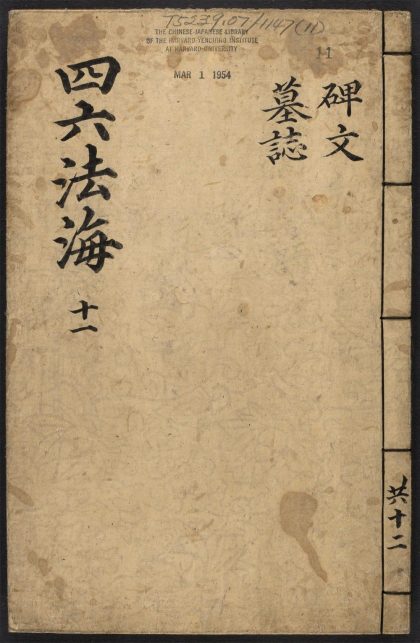 T5239.07/1147(11)
THE CHINESE-JAPANESE LIBRARY
OF THE HARVARD-YENCHING INSTITUTE
AT HARVARD UNIVERSITY
MAR 1 1954
11
碑文
墓誌
四六法海
十一
共十二